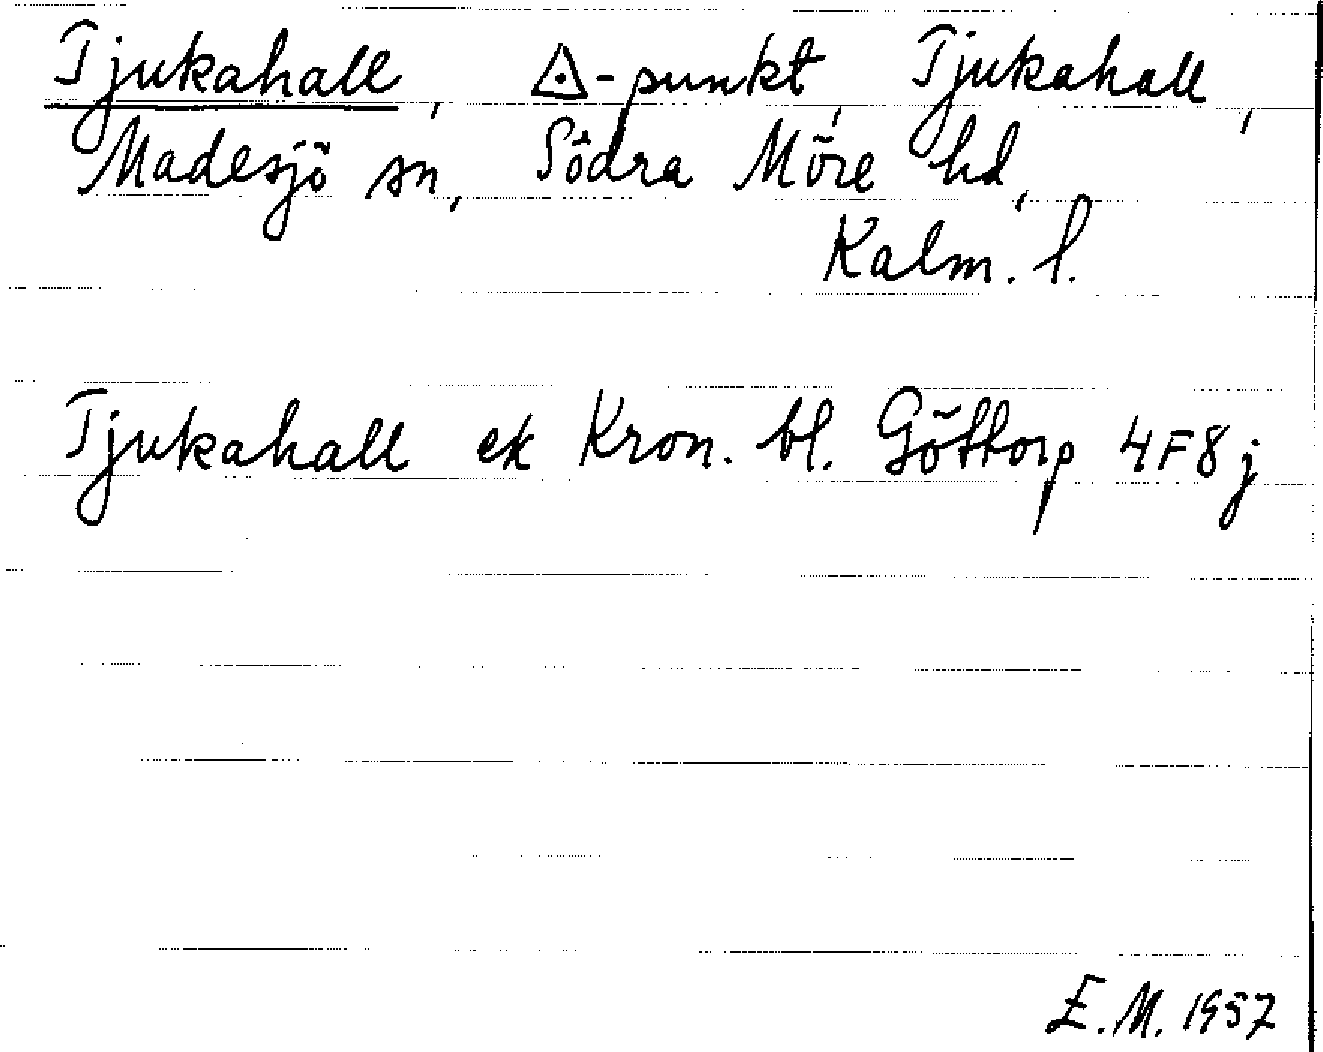 Tjukahall, ◬-punkt, Tjukahall,
Madesjö sn, Södra Möre hd,
Kalm. l.
Tjukahall ek Kron. bl. Göttorp 4F8j
E.M. 1957